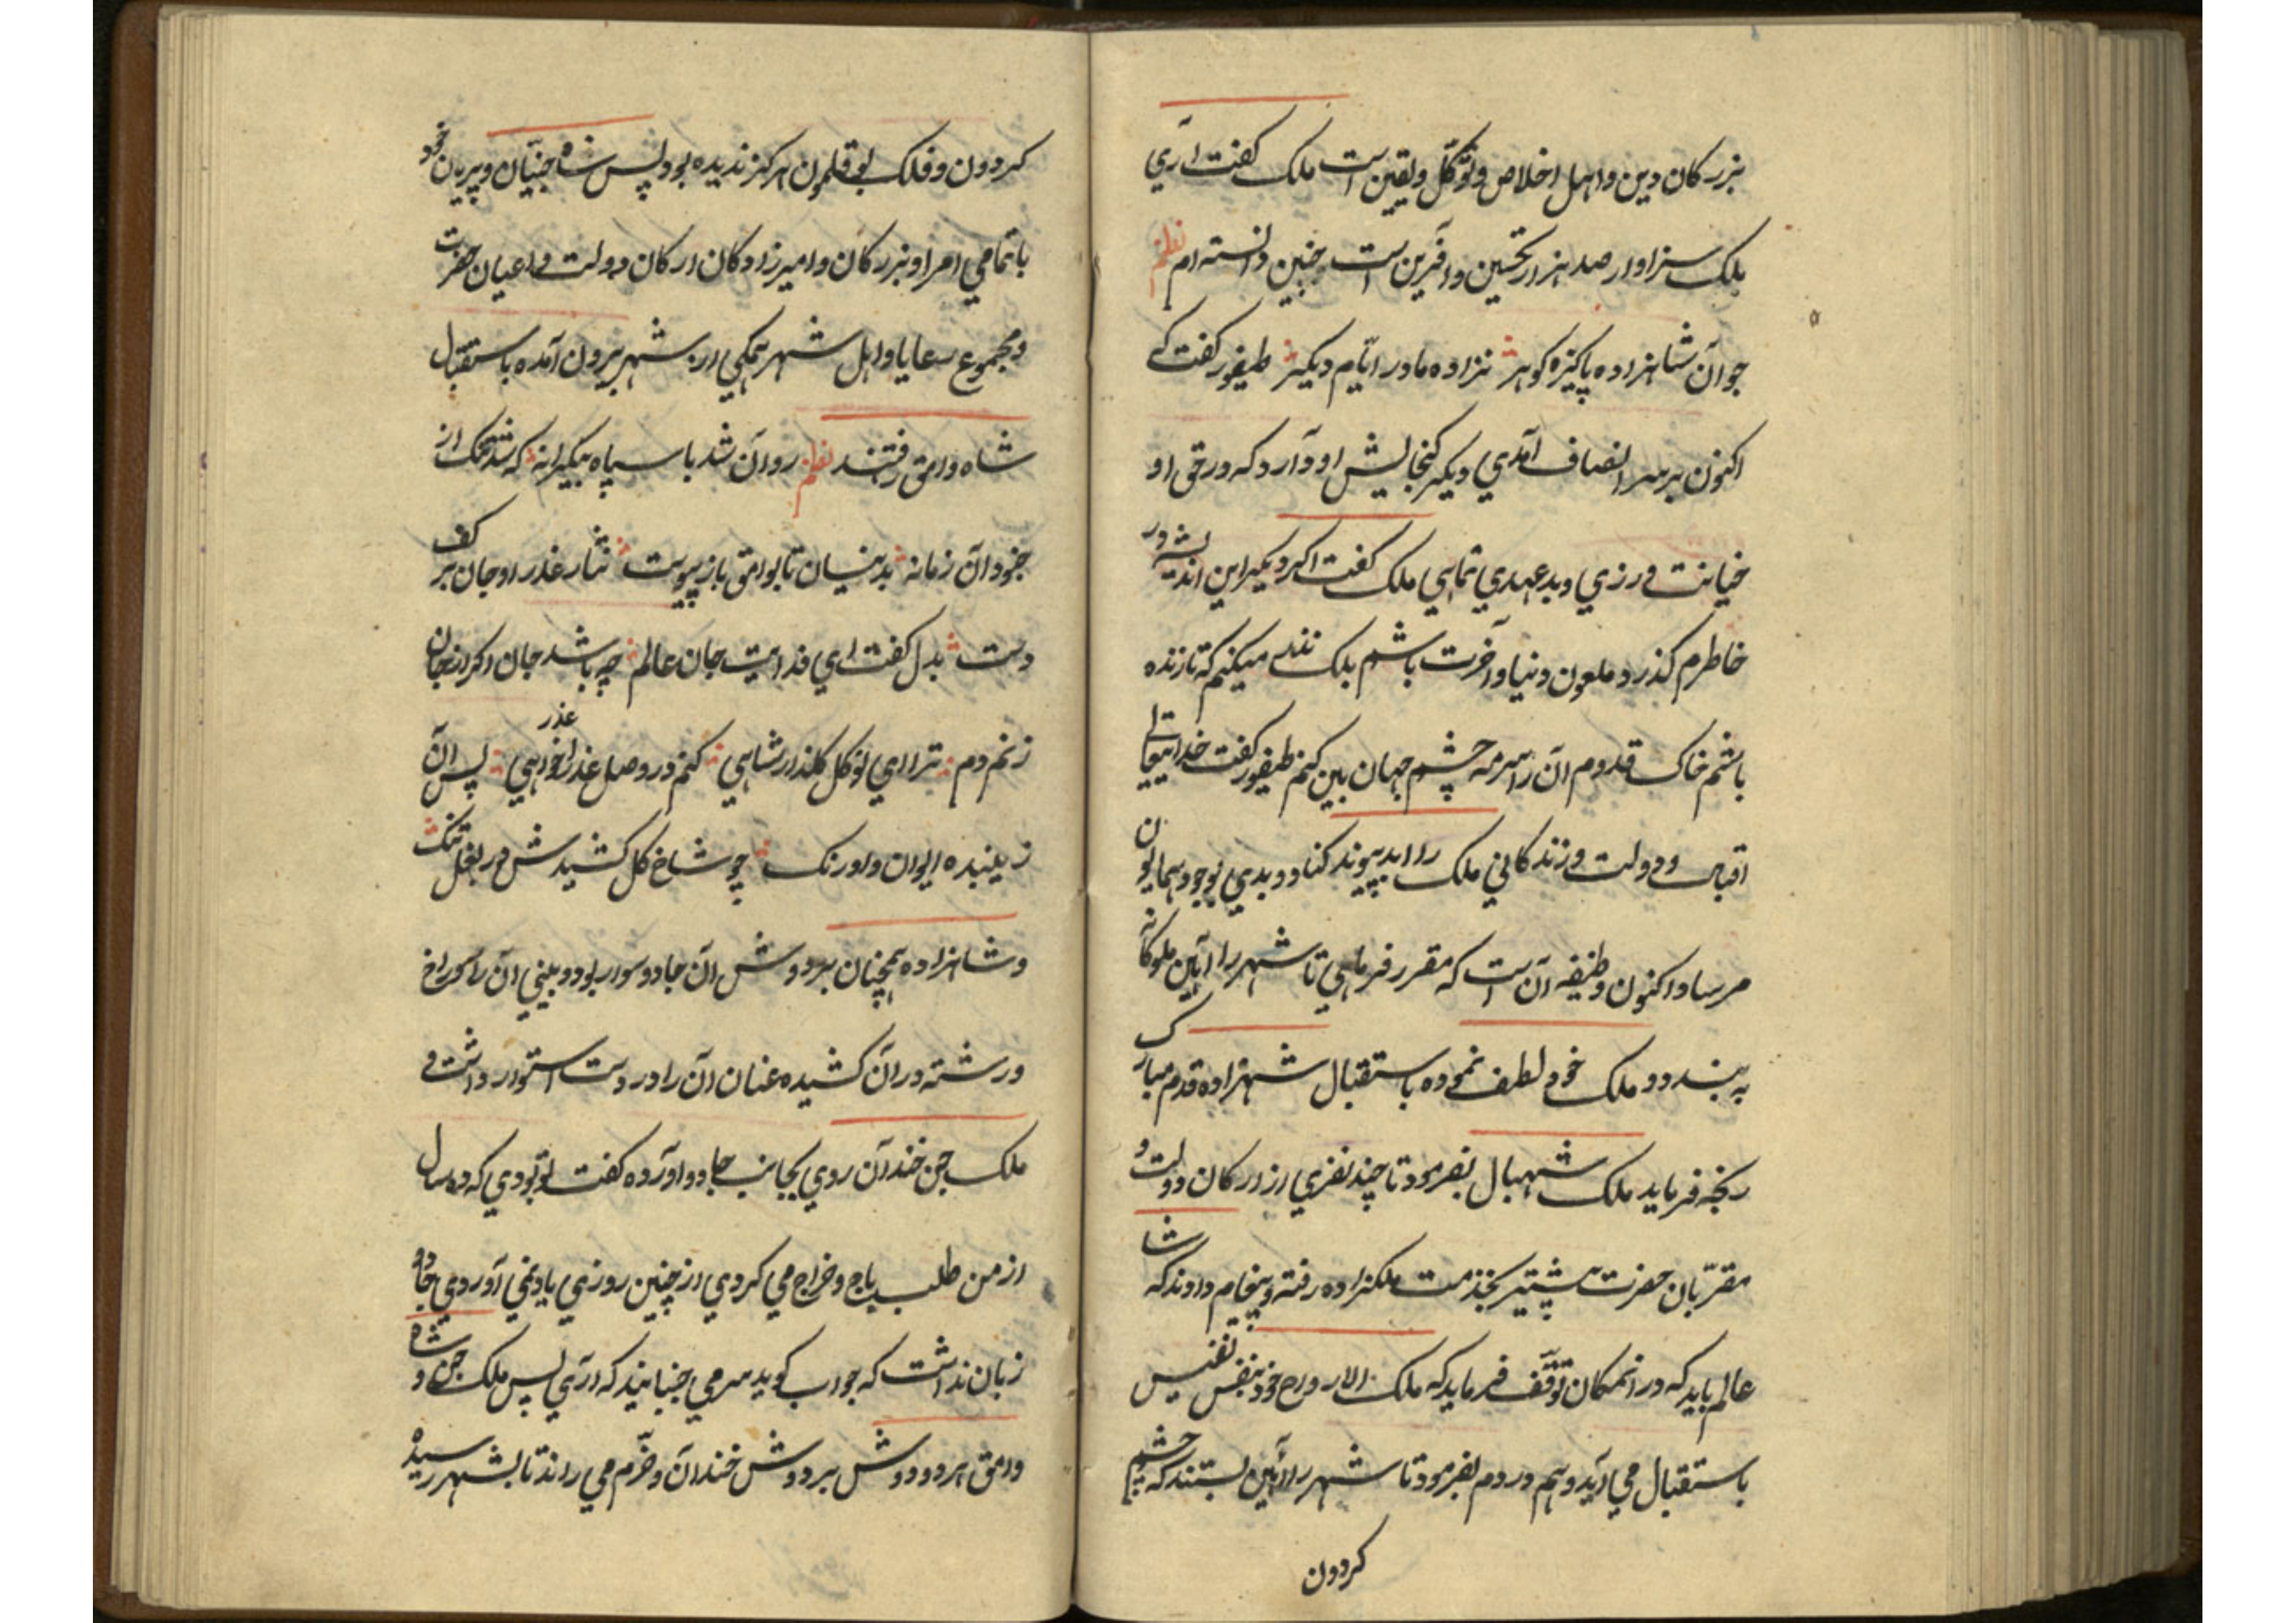 بزرکان دین و اهل اخلاص و توکّل و یقین است ملک کفت اری
بلک سزاوار صد هزار تحسین و آفرین است چنین دانسته ام نظم
جوان شاهزاده پاکیزه کوهر نزاده مادر ایّام دیکر طیفور کفت که
اکنون بر سر انصاف آمدي دیکر کنجایش او دارد که در حق او
خیانت ورزي و بد عهدي نمایي ملک کفت اکر دیکر این اندیشه در
خاطرم کذرد ملعون دنیا و آخرت باشم بلک نذر میکنم که تا زنده
باشم خاک قدوم آن را سرمه چشم جهان بین کنم طیفور کفت خدایتعالی
اقبال و دولت و زندکاني ملک را ابد پیوند کناد و بدي بوجود همایون
مرساد اکنون وظیفه آن است که مقرر فرمایي تا شهر را آیین ملوکانه
به بندد و ملک خود لطف نموده باستقبال شهزاده قدم مبارک
رنجه فرماید ملک شهبال بفرمود تا چند نفري از ارکان دولت و
مقرّبان حضرت پیشتر بخدمت ملکزاده رفته و پیغام دادند که شاه
عالم باید که در انمکان توقّف فرماید که ملک الارواح خود بنفس نفیس
باستقبال مي آید و هم در دم بفرمود تا شهر را آئین بستند که چشم
کردون
کردون و فلک بوقلمون هرکز ندیده بود پس شاه جنیّان و پریان خود
با تمامي امرا و بزرکان و امیرزادکان ارکان دولت و اعیان حضرت
و مجموع رعایا و اهل شهر همکي از شهر بیرون آمده باستقبال
شاه وامق رفتند نظم روان شد با سپاه بیکرانه که شد تنک از
جنود آن زمانه بدینسان تا بوامق باز پیوست نثار عذر او جان بر کف
دست بدل کفت اي فدایت جان عالم چه باشد جان اکر از جان
زنم دم ترا اي نوکل کلذار شاهي کنم در وصل عذرا عذر خواهي پس آن
زیبنده ایوان و اورنک چو شاخ کل کشیدش در بغل تنک
و شاهزاده همچنان بر دوش آن جادو سوار بود و بیني آن را سوراخ
و رشته در آن کشیده عنان آن را در دست استوار داشت و
ملک جن خندان روي بجانب جادو آورده کفت تو بودي که ده سال
از من طلب باج و خراج مي کردي از چنین روزي یاد نمي آوردي جادو
زبان نداشت که جواب کوید سر مي جنبانید که آري پس ملک جن و شاه
وامق هر دو دوش بر دوش خندان و خرّم مي راندند تا بشهر رسیده